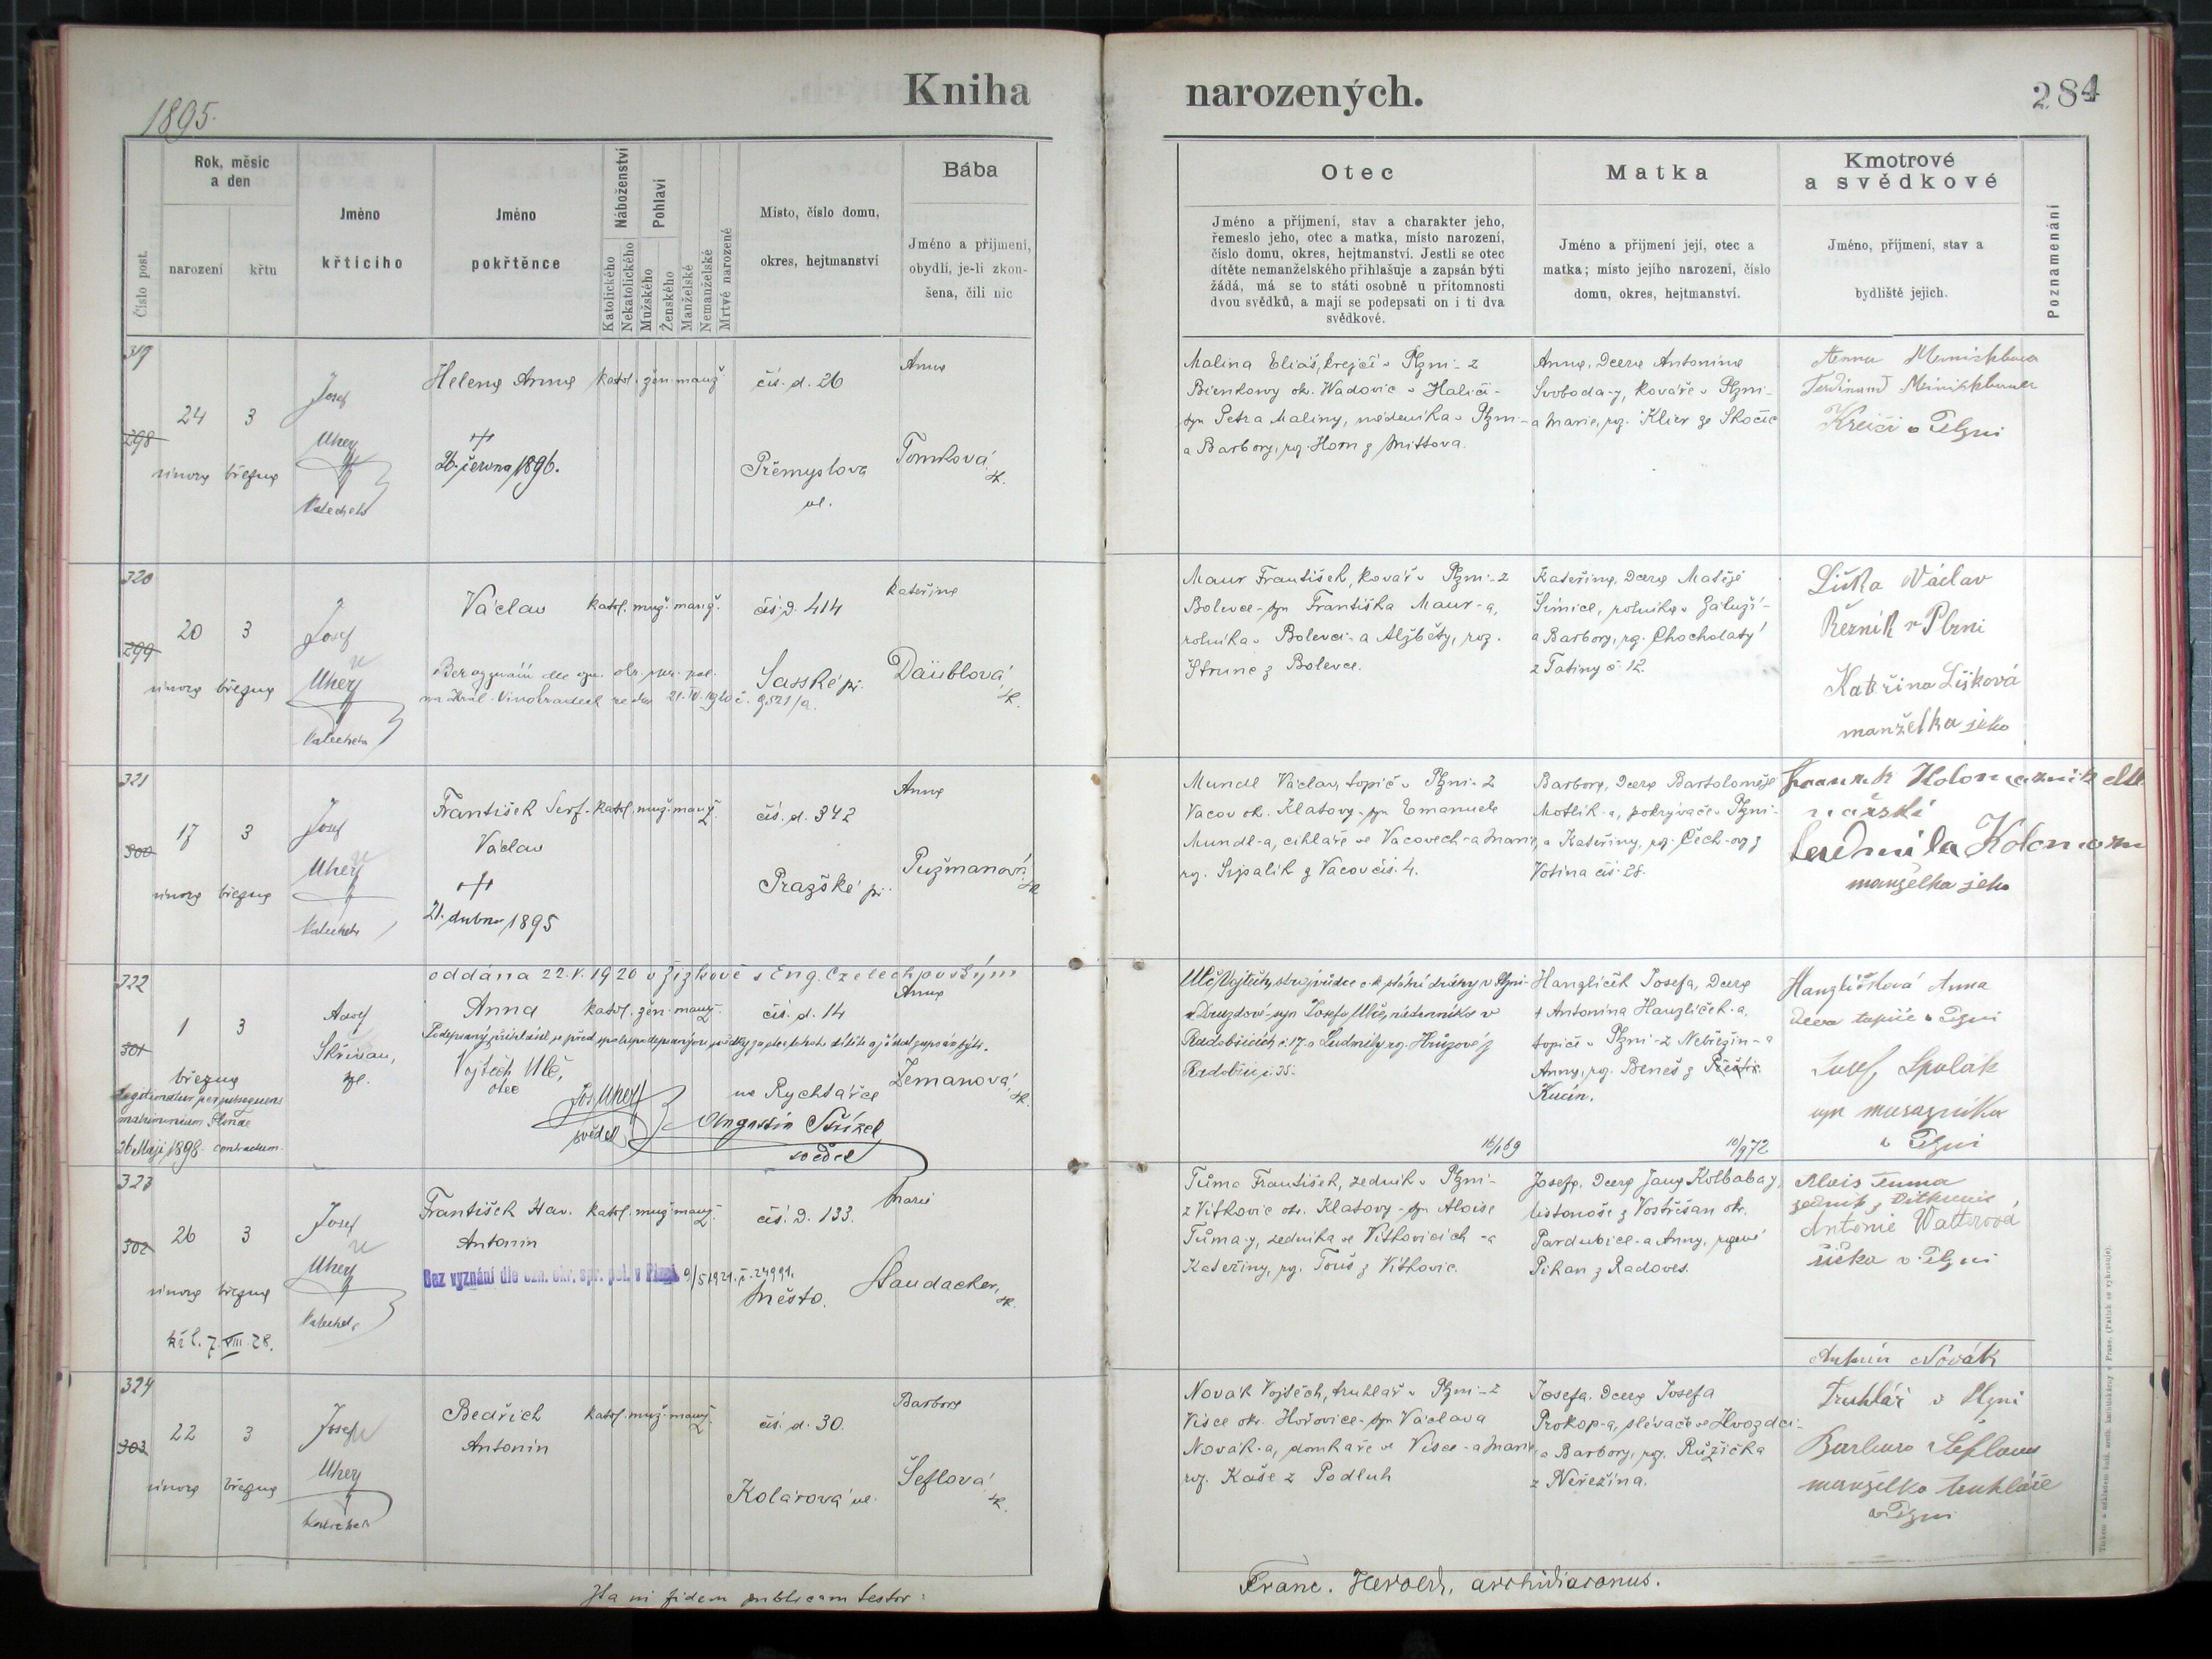 Kniha narozených.
1895.
284
Číslo post.
Rok, měsíc
a den
narození
křtu
Jméno
křtícího
Jméno
pokřtěnce
Náboženství
Katolického
Nekatolického
Pohlaví
Mužského
Ženského
Manželské
Nemanželské
Mrtvě narozené
Místo, číslo domu,
okres, hejtmanství
Bába
Jméno a příjmení,
obydlí, je-li zkou-
šena, čili nic
Otec
Jméno a příjmení, stav a charakter jeho,
řemeslo jeho, otec a matka, místo narození,
číslo domu, okres, hejtmanství. Jestli se otec
dítěte nemanželského přihlašuje a zapsán býti
žádá, má se to státi osobně u přítomnosti
dvou svědků, a mají se podepsati on i ti dva
svědkové.
Matka
Jméno a příjmení její, otec a
matka; místo jejího narození, číslo
domu, okres, hejtmanství.
Kmotrové
a svědkové
Jméno, příjmení, stav a
bydliště jejich.
Poznamenání
319
298
24 3
února března
Josef
Uherý
Katecheta
Helena Anna katol. žen. manž.
26. června 1896.
čís. d. 26
Přemyslova
ul.
Anna
Tomková
Malina Eliáš, krejčí v Plzni - z
Bienkowy ok. Wadovic v Haliči -
syn Petra Maliny, nádeníka v Plzni -
a Barbory, roz. Horn z Mittova.
Anna, dcera Antonína
Svoboda-y, kováře v Plzni -
a Marie, roz. Klier ze Skočic
Ferdinand
Krejčí v Plzni
320
299
20 3
února března
Josef
Uherý
Katecheta
Václav katol. muž. manž.
Bez vyznání dle
na Král. Vinohradech ze dne 21.IV.1920 č. 9521/a.
čís. d. 414
Saské př.
Kateřina
Daüblová
Maur František, kovář v Plzni - z
Bolevce - syn Františka Maur-a,
rolníka v Bolevci - a Alžběty, roz.
Strunc z Bolevce.
Kateřina, dcera Matěje
Šimice, rolníka v Záluží -
a Barbory, roz. Chocholatý
z Tatiny č. 12.
Liška Václav
Řezník v Plzni
Kateřina Lišková
manželka jeho
321
300
17 3
února března
Josef
Uherý
Katecheta
František Serf. katol. muž. manž.
Václav
21. dubna 1895
čís. d. 342
Pražské př.
Anna
Pužmanová
Mundl Václav, topič v Plzni - z
Vacov ok. Klatovy - syn Emanuela
Mundl-a, cihláře ve Vacovech - a Marie,
roz. Sypalík z Vacov čís. 4.
Barbora, dcera Bartoloměje
Motlík-a, pokrývače v Plzni -
a Kateřiny, roz. Čech-ov z
Votína čís. 28.
Ludmila
manželka jeho
322
301
1 3
března
Adolf
Skřivan,
oddána 22.V.1920 v Žižkově s Eng. Czelechpovským
Anna katol. žen. manž.
Vojtěch Ulč,
otec
Jos. Uherý
svědek
Augustin
svědek
Legitimatur per subsequens
matrimonium Plnae
26 Maji 1898. contractum.
čís. d. 14
na Rychtářce
Anna
Zemanová
Ulč Vojtěch, strojvůdce c.k. státní dráhy v Plzni -
z Druzdové - syn Josefa Ulče, nádenníka v
Radobčicích č. 17 - a Ludmily, roz. Hrůzové z
Radobčic č. 35.
16/169
Hanzlíček Josefa, dcera
† Antonína Hanzlíček-a,
topiče v Plzni - z Nebřezin - a
Anny, roz. Beneš z
Kucín.
10/972
Hanzlíčková Anna
dcera topiče v Plzni
Josef Spulák
syn
v Plzni
323
302
26 3
února března
7. VIII. 28.
Josef
Uherý
Katecheta
František Hav. katol. muž. manž.
Antonín
Bez vyznání dle ozn. okr. spr. pol. v Plzni 9/5 1921. č. 24991.
čís. d. 133.
Město.
Marie
Staudacker,
Tůma František, zedník v Plzni -
z Vítkovic ok. Klatovy - syn Aloise
Tůma-y, zedníka ve Vítkovicích - a
Kateřiny, roz. Touš z Vítkovic.
Josefa, dcera Jana Kolbaba-y,
listonoše z Vostřešan ok.
Pardubice - a Anny, rozené
Pikan z Radoves.
Alois Tuma
zedník z Vítkovic
Antonie Watterová
šička v Plzni
324
303
22 3
února března
Josef
Uherý
Katecheta
Bedřich katol. muž. manž.
Antonín
čís. d. 30.
Kolárova ul.
Barbora
Šeflová
Novák Vojtěch, truhlář v Plzni - z
Vísce okr. Hořovice - syn Václava
Novák-a, domkáře ve Vísce - a Marie,
roz. Kaše z Podluh
Josefa, dcera Josefa
Prokop-a, slévače ve Hvozdci -
a Barbory, roz. Růžička
z Neřežína.
Antonín Novák
Truhlář v Plzni
Barbora Šeflová
manželka truhláře
v Plzni
Ita in fidem publicam testor:
Franc. Herold, archidiaconus.